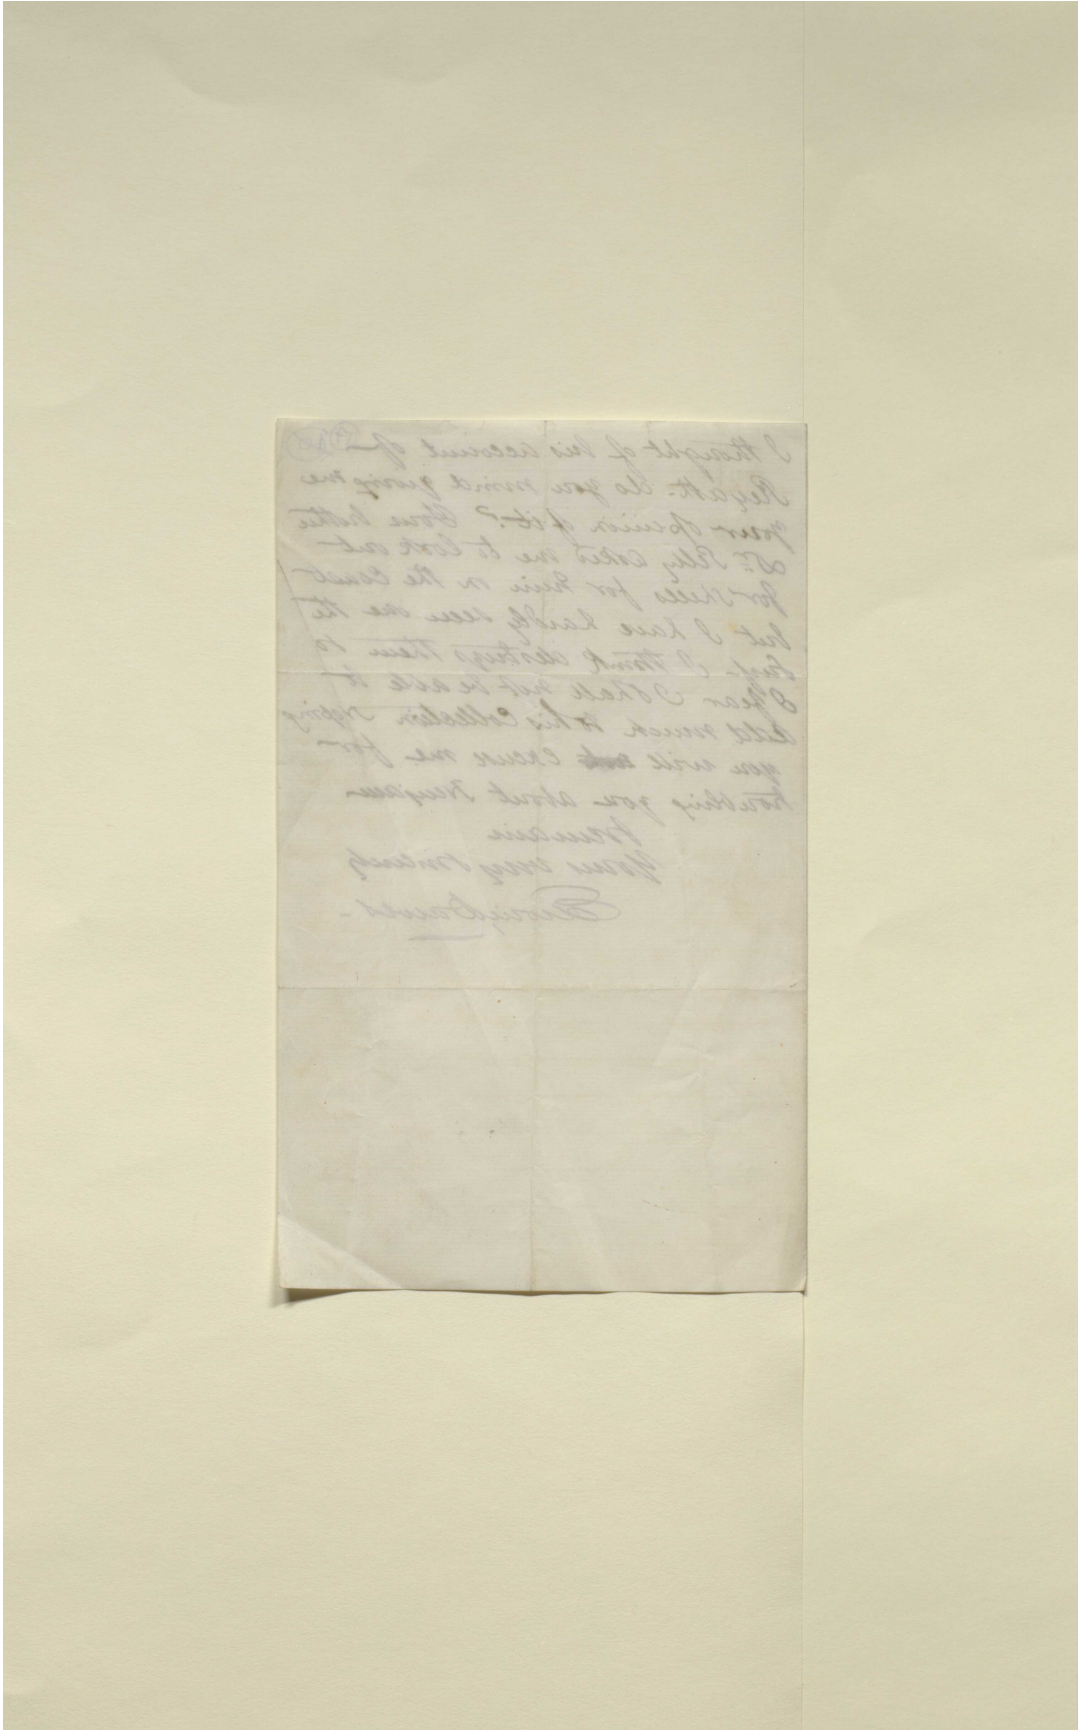 I thought of his account of
Reyatt. do you mind giving me
your opinion of it? Your brother
Sr. Pelly asked me to look out
for shells for him on the Coast
but I have hardly seen one the
Surf I think destroys them so
I fear I shall not be able to
add much to his Collection hoping
you will excuse me for
troubling you about
I remain
Yours very sincerely
Henry